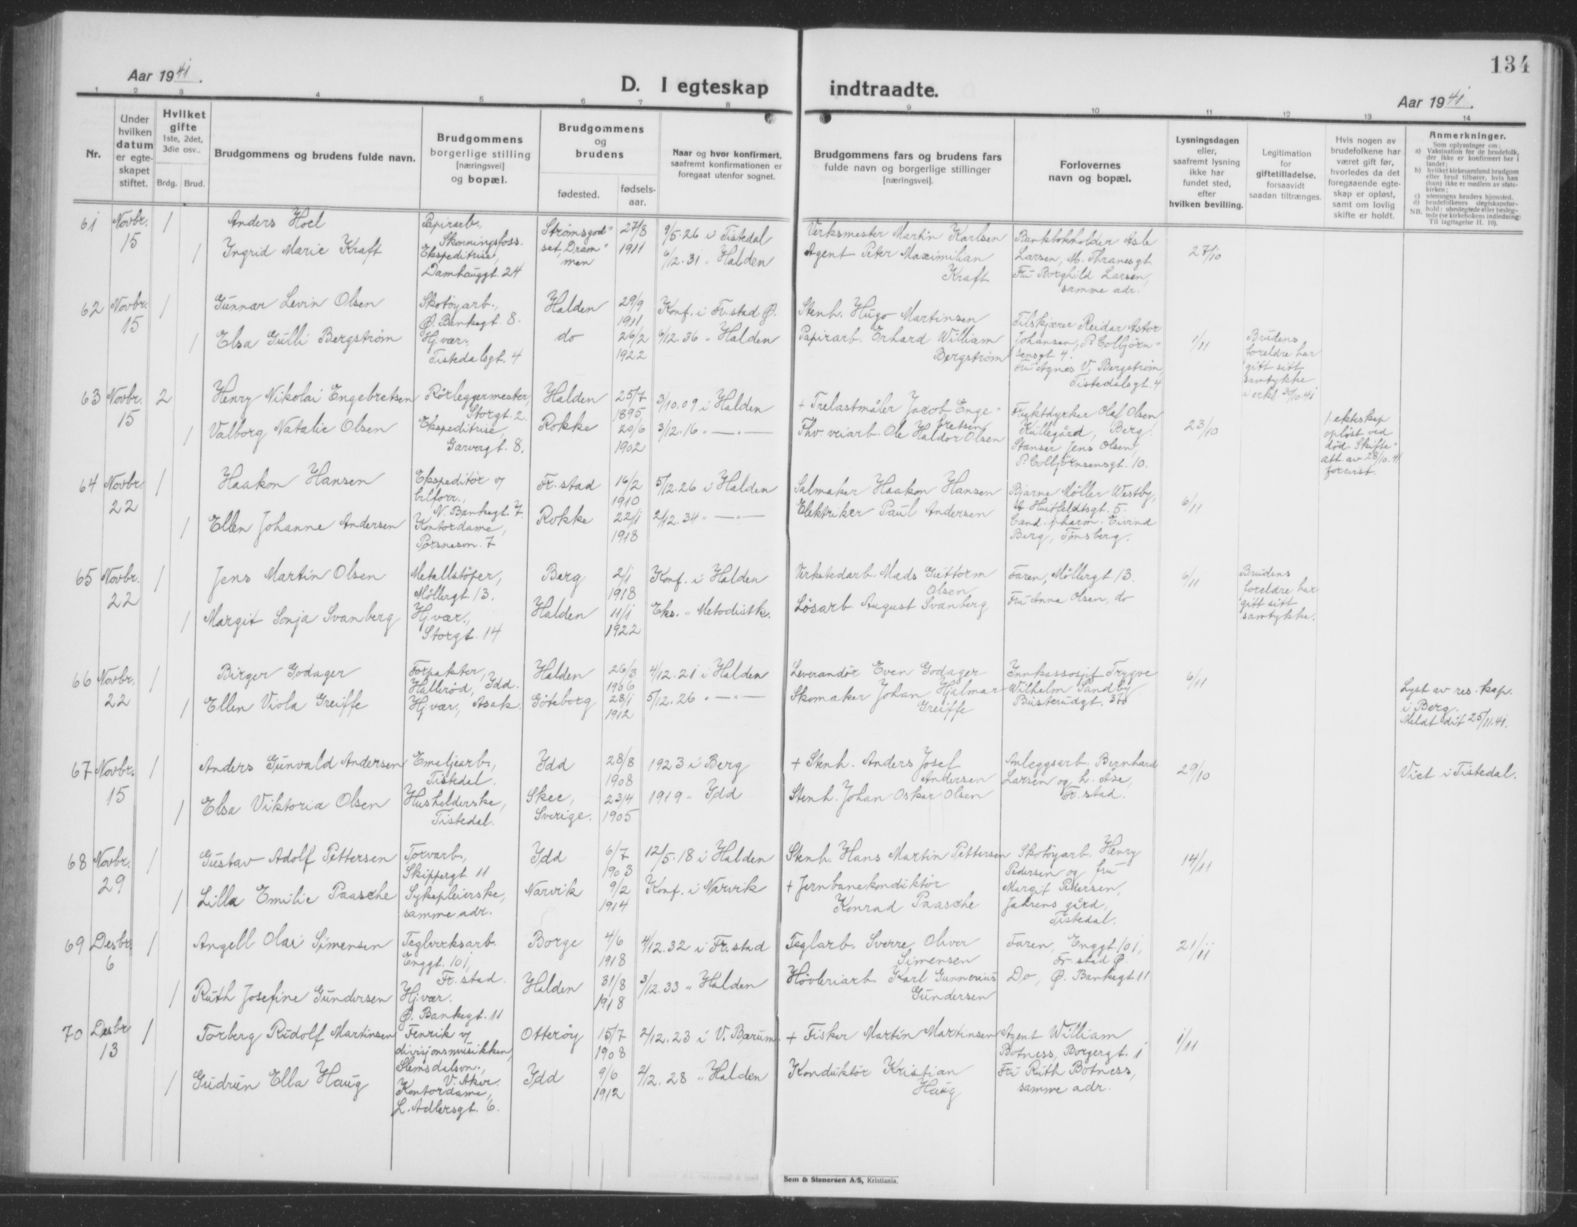 134
Aar 1941.
D. I egteskap indtraadte.
Aar 1941.
1 2 3 4 5 6 7 8 9 10 11 12 13 14
Nr.
Under hvilken datum er egte-skapet stiftet.
Hvilket gifte 1ste, 2det, 3die osv..
Brdg. Brud.
Brudgommens og brudens fulde navn.
Brudgommens borgerlige stilling [næringsvei] og bopæl.
Brudgommens og brudens
fødested.
fødsels-aar.
Naar og hvor konfirmert, saafremt konfirmationen er foregaat utenfor sognet.
Brudgommens fars og brudens fars fulde navn og borgerlige stillinger [næringsvei].
Forlovernes navn og bopæl.
Lysningsdagen eller, saafremt lysning ikke har fundet sted, efter hvilken bevilling.
Legitimation for giftetilladelse. forsaavidt saadan tiltrænges.
Hvis nogen av brudefolkene har været gift før, hvorledes da det foregaaende egte-skap er opløst, samt om lovlig skifte er holdt.
Anmerkninger.
61 Novbr. 15 1 Anders Hoel Papirarb., Skonningsfoss. Strømsgodset, Drammen 27/8 1911 9/5-26 i Tistedal Verksmester Martin Karlsen Bankbokholder Asle Larsen, M. Thranesgt. 27/10
1 Ingrid Marie Kraft Ekspeditrise, Damhauggt. 24 6/12-31 - Halden Agent Peter Maximilian Kraft Fru Borghild Larsen, samme adr.
62 Novbr. 15 1 Gunnar Levin Olsen Skotøyarb., Ø. Bankegt. 8. Halden 29/9 1911 Konf. i Fr.stad Ø. Stenh. Hugo Martinsen Filskjærer Reidar Astor Johansen, P. Colbjørn-sensgt. 4. 1/11
1 Elsa Gulli Bergstrøm Hj.vær. Tistedalsgt. 4 do 26/2 1922 6/12-36 - Halden Papirarb. Erhard William Bergstrøm Fru Agnes V. Bergstrøm Tistedalsgt. 4
Brudens foreldre har gitt sitt samtykke i erkl. 30/10 41
63 Novbr. 15 2 Henry Nikolai Engebretsen Rørleggermester, Storgt. 2. Halden 25/7 1895 3/10.09 i Halden + Trelastmåler Jacob Engebretsen Fruktdyrker Olaf Olsen Kullegård, Berg 23/10
1 Valborg Natalie Olsen Ekspeditrise, Garvergt. 8. Rokke 20/6 1902 3/12-16 - — - — Fhv. veiarb. Ole Haldor Olsen Stanser Jens Olsen, P. Colbjørnsensgt. 10.
1 ekteskap opløst ved død. Skifte-att av 28/10.41 forevist.
64 Novbr. 22 1 Haakon Hansen Ekspeditør og bilforr., N. Bankegt. 7 Fr.stad 16/2 1910 5/12-26 i Halden Salmaker Haakon Hansen Bjarne Møller Westby, Huitfeldtsgt. 5. 6/11
1 Ellen Johanne Andersen Kontordame, Porsnesvn. 7 Rokke 22/1 1918 2/12-34 - — - — Elektriker Paul Andersen Cand. pharm. Eivind Berg, Tønsberg.
65 Novbr. 22 1 Jens Martin Olsen Metallstøper, Møllergt. 13. Berg 2/1 1918 Konf. i Halden Verkstedarb. Mads Guttorm Olsen Faren, Møllergt. 13. 6/11
1 Margit Sonja Svanberg Hj.vær., Storgt. 14 Halden 11/1 1922 Eks. - Metodistk. Løsarb. August Svanberg Fru Anna Olsen, do
Brudens foreldre har gitt sitt samtykke.
66 Novbr. 22 1 Birger Godager Forpakter, Hallerød, Idd. Halden 26/3 1906 4/12-21 i Halden Leverandør Even Godager Innkassosjef Trygve Wilhelm Sandby 6/11
1 Ellen Viola Greiffe Hj.vær, Asak. Göteborg 28/1 1912 5/12-26 - — - — Skomaker Johan Hjalmar Greiffe Busterudgt.
Lyst av res. kap. i Berg. Meldt dit 25/11.41.
67 Novbr. 15 1 Anders Gunvald Andersen Emaljearb., Tistedal. Idd 28/8 1908 1923 i Berg + Stenh. Anders Josef Andersen Anleggsarb. Bernhard Larsen og h. Åse, Fr.stad. 29/10
1 Elsa Viktoria Olsen Husholderske, Tistedal. Skee, Sverige. 23/4 1905 1919 - Idd Stenh. Johan Oskar Olsen
Viet i Tistedal.
68 Novbr. 29 1 Gustav Adolf Pettersen Torvarb., Skippergt 11 Idd 6/7 1903 12/5-18 i Halden Stenh. Hans Martin Pettersen Skotøyarb. Henry Pedersen og fru Margit Pedersen, Jahrens gård, Tistedal. 14/11
1 Lilla Emilie Paasche Sykepleierske, samme adr. Narvik 9/2 1914 Konf. i Narvik + Jernbanekonduktør Konrad Paasche
69 Desbr. 6 1 Angell Olai Simensen Teglverksarb. Enggt. 101, Fr.stad. Borge 4/6 1918 4/12.32 i Fr.stad Teglarb. Sverre Oliver Simensen Faren, Enggt. 101, Fr.stad Ø. 21/11
1 Ruth Josefine Gundersen Hj.vær. Ø. Bankegt. 11 Halden 31/8 1918 3/12.33 - Halden Høvleriarb. Karl Gunnerius Gundersen Do, Ø. Bankegt 11
70 Desbr 13 1 Torberg Rudolf Martinsen Fenrik v/ divisjonsmusikken, V. Aker. Otterøy 15/7 1908 2/12.23 i V. Bærum + Fisker Martin Martinsen Agent William Botness, Borgergt. 1 1/11
1 Gudrun Ella Haug Kontordame, L. Adlersgt. 6. Idd 9/6 1912 2/12.28 - Halden Konduktør Kristian Haug Fru Ruth Botness, samme adr.
Sem & Stenersen A/S, Kristiania.